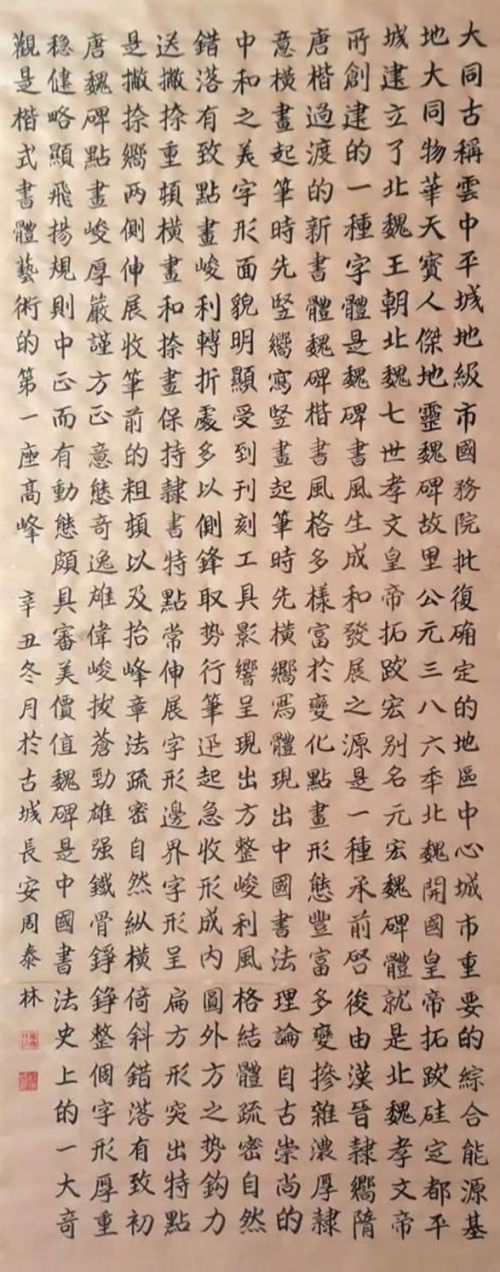 大同古稱雲中平城地級市國務院批復确定的地區中心城市重要的綜合能源基
地大同物華天寶人傑地靈魏碑故里公元三八六年北魏開國皇帝拓跋硅定都平
城建立了北魏王朝北魏七世孝文皇帝拓跋宏别名元宏魏碑體就是北魏孝文帝
所創建的一種字體是魏碑書風生成和發展之源是一種承前啓後由漢晉隸嚮隋
唐楷過渡的新書體魏碑楷書風格多樣富於變化點畫形態豐富多變摻雜濃厚隸
意橫畫起筆時先竪嚮寫竪畫起筆時先橫嚮爲體現出中國書法理論自古崇尚的
中和之美字形面貌明顯受到刊刻工具影響呈現出方整峻利風格結體疏密自然
錯落有致點畫峻利轉折處多以側鋒取勢行筆迅起急收形成内圓外方之勢鈎力
送撇捺重頓橫畫和捺畫保持隸書特點常伸展字形邊界字形呈扁方形突出特點
是撇捺嚮两側伸展收筆前的粗頓以及抬峰章法疏密自然纵橫倚斜錯落有致初
唐魏碑點畫峻厚嚴謹方正意態奇逸雄偉峻拔蒼勁雄强鐵骨錚錚整個字形厚重
穩健略顯飛揚規則中正而有動態頗具審美價值魏碑是中國書法史上的一大奇
觀是楷式書體藝術的第一座高峰 辛丑冬月於古城長安周泰林